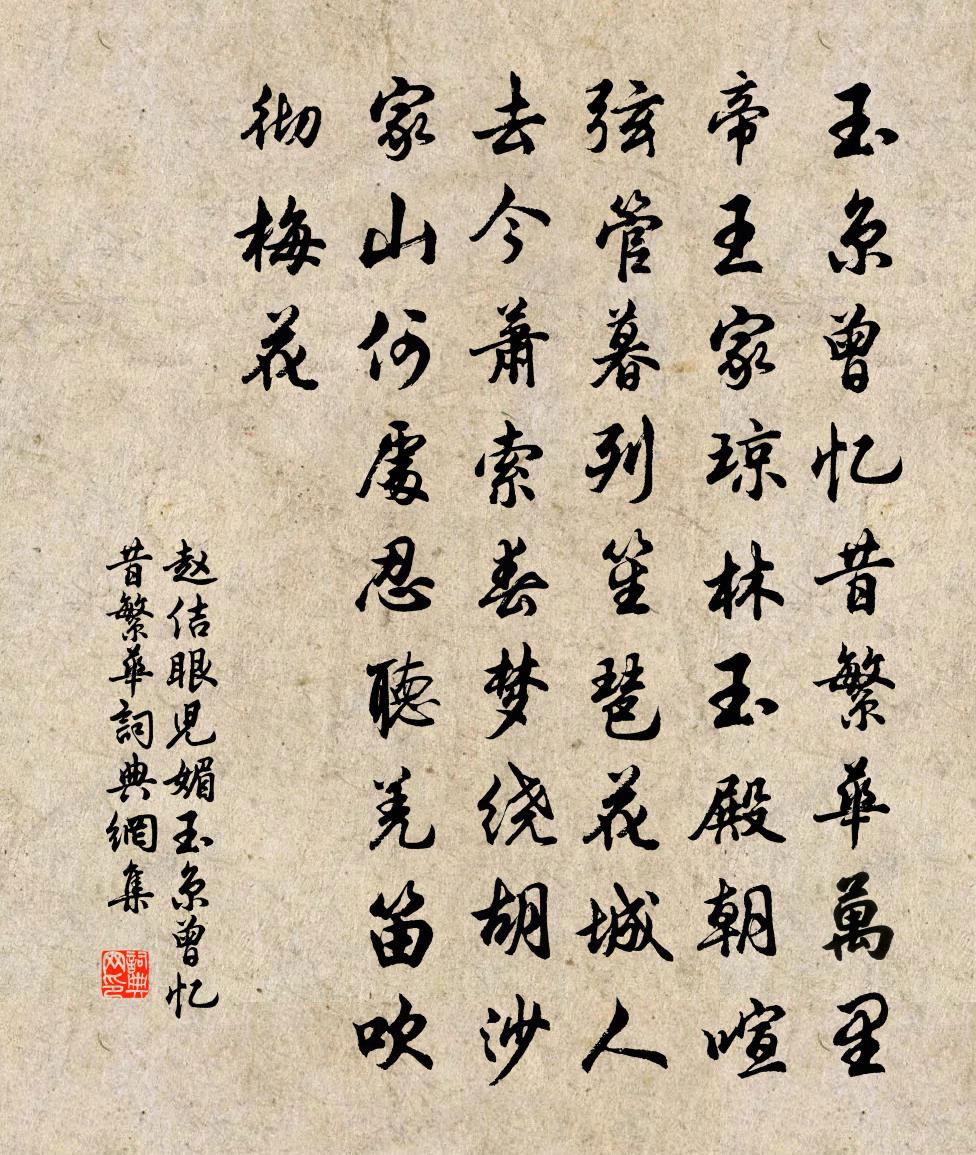 玉京曾忆昔繁華萬里
帝王家琼林玉殿朝喧
弦管暮列笙琶花城人
去今萧索春梦绕胡沙
家山何處忍聽羌笛吹
彻梅花
赵佶眼児媚玉京曾忆
昔繁華詞典網集
詞典网印